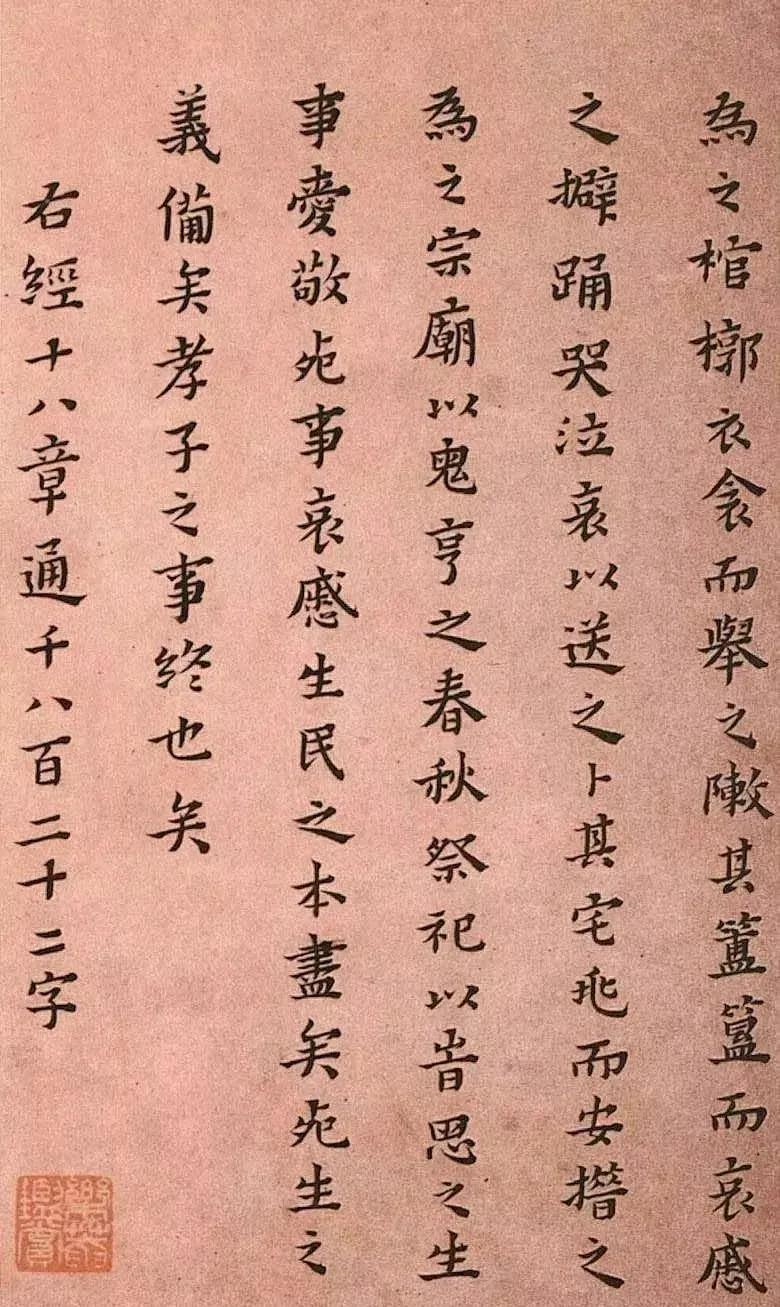 為之棺槨衣衾而舉之敶其簠簋而哀慼
之擗踊哭泣哀以送之卜其宅兆而安措之
為之宗廟以鬼亨之春秋祭祀以旹思之生
事愛敬死事哀慼生民之本盡矣死生之
義備矣孝子之事終也矣
右經十八章通千八百二十二字